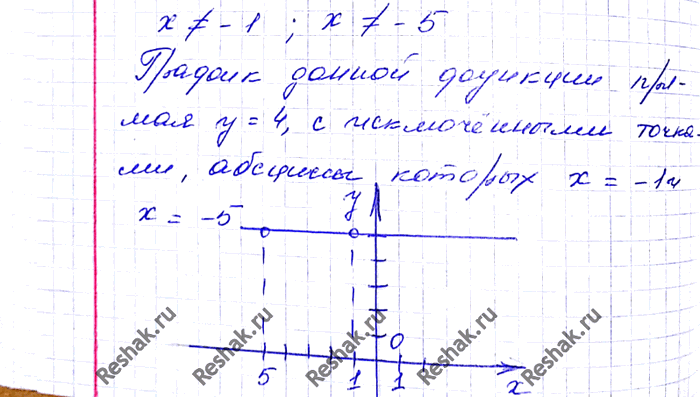 x ≠ -1 ; x ≠ -5
График данной функции пря-
мая y = 4, с исключёнными точка-
ми, абсциссы которых x = -1 и
x = -5
y
0
5 1 1 x
Reshak.ru Reshak.ru Reshak.ru Reshak.ru Reshak.ru